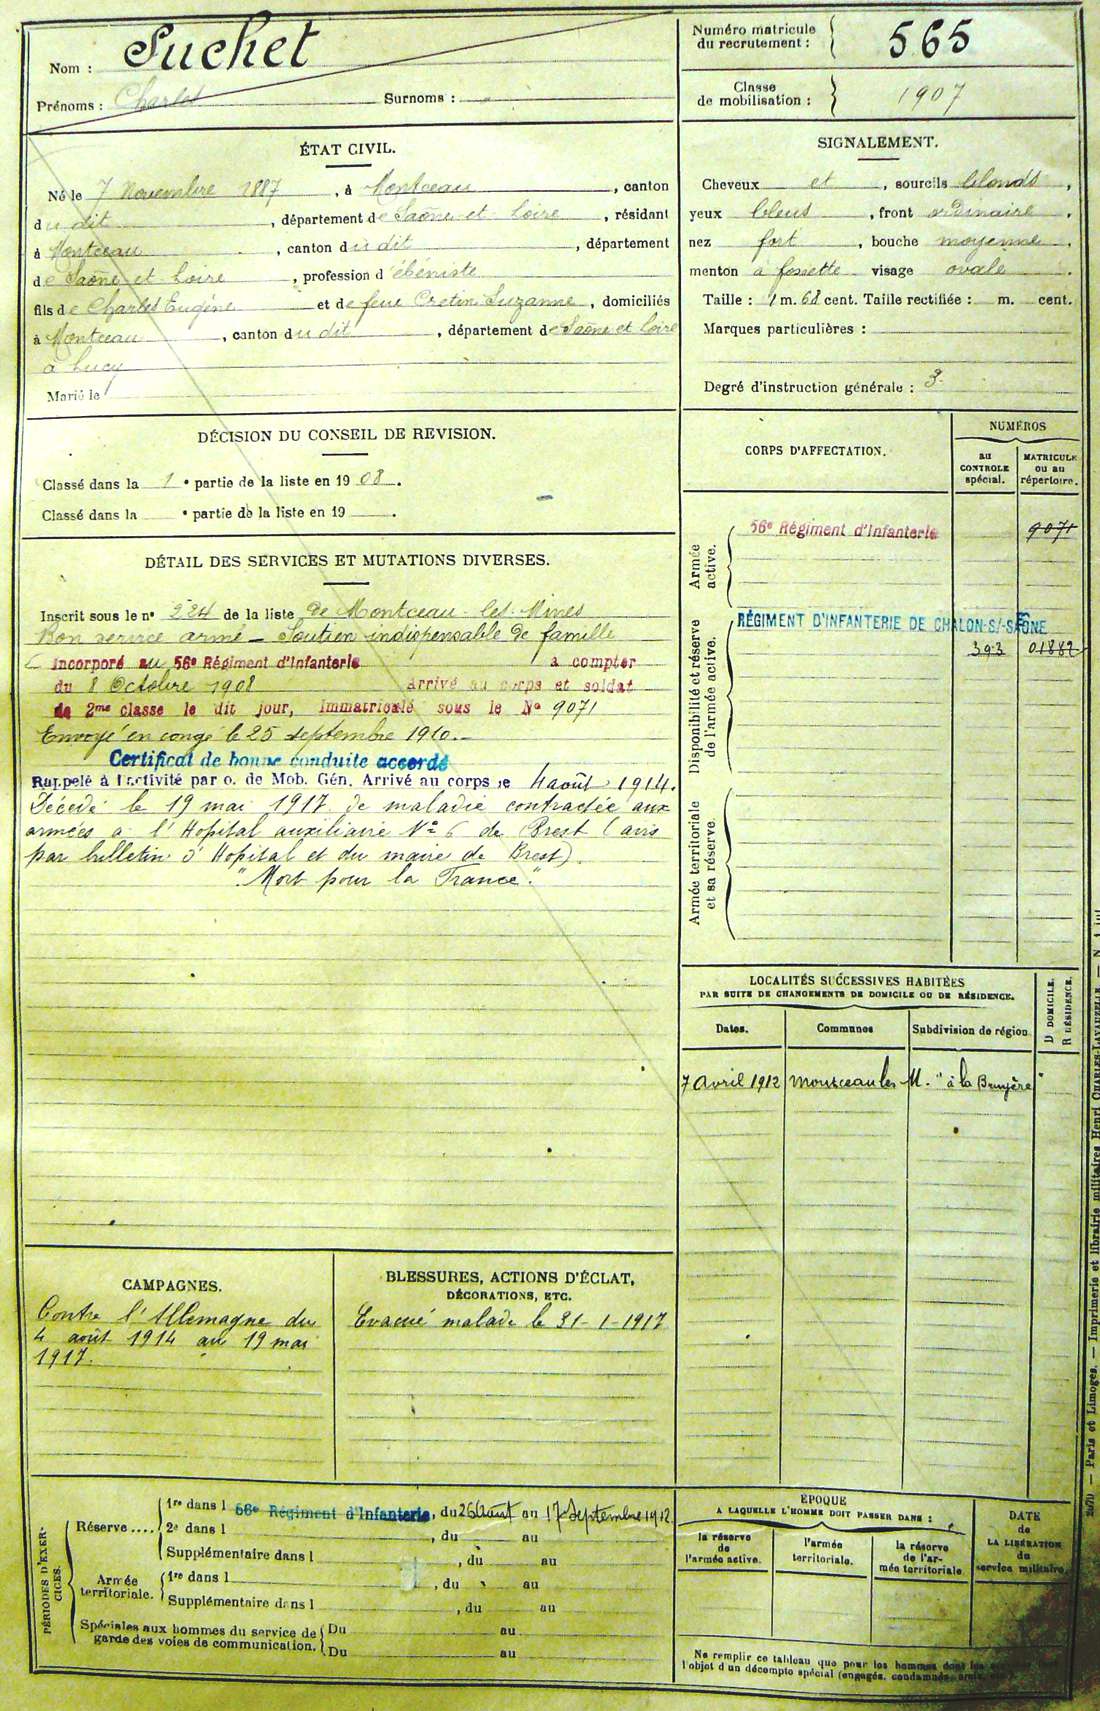 Nom : Suchet
Prénoms : Charles Surnoms :
Numéro matricule du recrutement : 565
Classe de mobilisation : 1907
ÉTAT CIVIL.
Né le 7 Novembre 1887, à Montceau, canton
du dit, département de Saône-et-Loire, résidant
à Montceau, canton du dit, département
de Saône et Loire, profession d'ébéniste
fils de Charles Eugène et de feue Cretin Suzanne, domiciliés
à Montceau, canton du dit, département de Saône et Loire
à Lucy
Marié le
SIGNALEMENT.
Cheveux et, sourcils blonds,
yeux bleus, front ordinaire,
nez fort, bouche moyenne,
menton à fossette visage ovale.
Taille : 1 m. 68 cent. Taille rectifiée : m. cent.
Marques particulières :
Degré d'instruction générale : 3
DÉCISION DU CONSEIL DE REVISION.
Classé dans la 1e partie de la liste en 1908.
Classé dans la e partie de la liste en 19 .
DÉTAIL DES SERVICES ET MUTATIONS DIVERSES.
Inscrit sous le no 224 de la liste de Montceau-les-Mines
Bon service armé – Soutien indispensable de famille
Incorporé au 56e Régiment d'Infanterie à compter
du 8 Octobre 1908 arrivé au corps et soldat
de 2me classe le dit jour, Immatriculé sous le No 9071
Envoyé en congé le 25 septembre 1910.
Certificat de bonne conduite accordé
Rappelé à l'activité par o. de Mob. Gén. Arrivé au corps le 4 août 1914.
Décédé le 19 mai 1917 de maladie contractée aux
armées à l'Hopital auxiliaire No 6 de Brest (avis
par bulletin d'Hopital et du maire de Brest).
"Mort pour la France".
CORPS D'AFFECTATION.
NUMÉROS
au CONTROLE spécial.
MATRICULE ou au répertoire.
Armée active.
56e Régiment d'Infanterie 9071
Disponibilité et réserve de l'armée active.
RÉGIMENT D'INFANTERIE DE CHALON-S/-SAÔNE
393 01882
Armée territoriale et sa réserve.
LOCALITÉS SUCCESSIVES HABITÉES
PAR SUITE DE CHANGEMENTS DE DOMICILE OU DE RÉSIDENCE.
Dates. Communes Subdivision de région
D DOMICILE. R RÉSIDENCE.
7 avril 1912 Montceau les M. "à la Bruyère"
CAMPAGNES.
Contre l'Allemagne du
4 août 1914 au 19 mai
1917.
BLESSURES, ACTIONS D'ÉCLAT,
DÉCORATIONS, ETC.
Evacué malade le 31-1-1917
PÉRIODES D'EXERCICES.
Réserve....
1re dans l 56e Régiment d'Infanterie, du 26 Août au 17 Septembre 1912.
2e dans l , du au
Supplémentaire dans l , du au
Armée territoriale.
1re dans l , du au
Supplémentaire dans l , du au
Spéciales aux hommes du service de garde des voies de communication.
Du au
Du au
ÉPOQUE
A LAQUELLE L'HOMME DOIT PASSER DANS :
la réserve de l'armée active.
l'armée territoriale.
la réserve de l'armée territoriale
DATE de LA LIBÉRATION du service militaire.
Ne remplir ce tableau que pour les hommes dont les
l'objet d'un décompte spécial (engagés, condamnés,
Paris et Limoges. — Imprimerie et librairie militaires Henri CHARLES-LAVAUZELLE. —